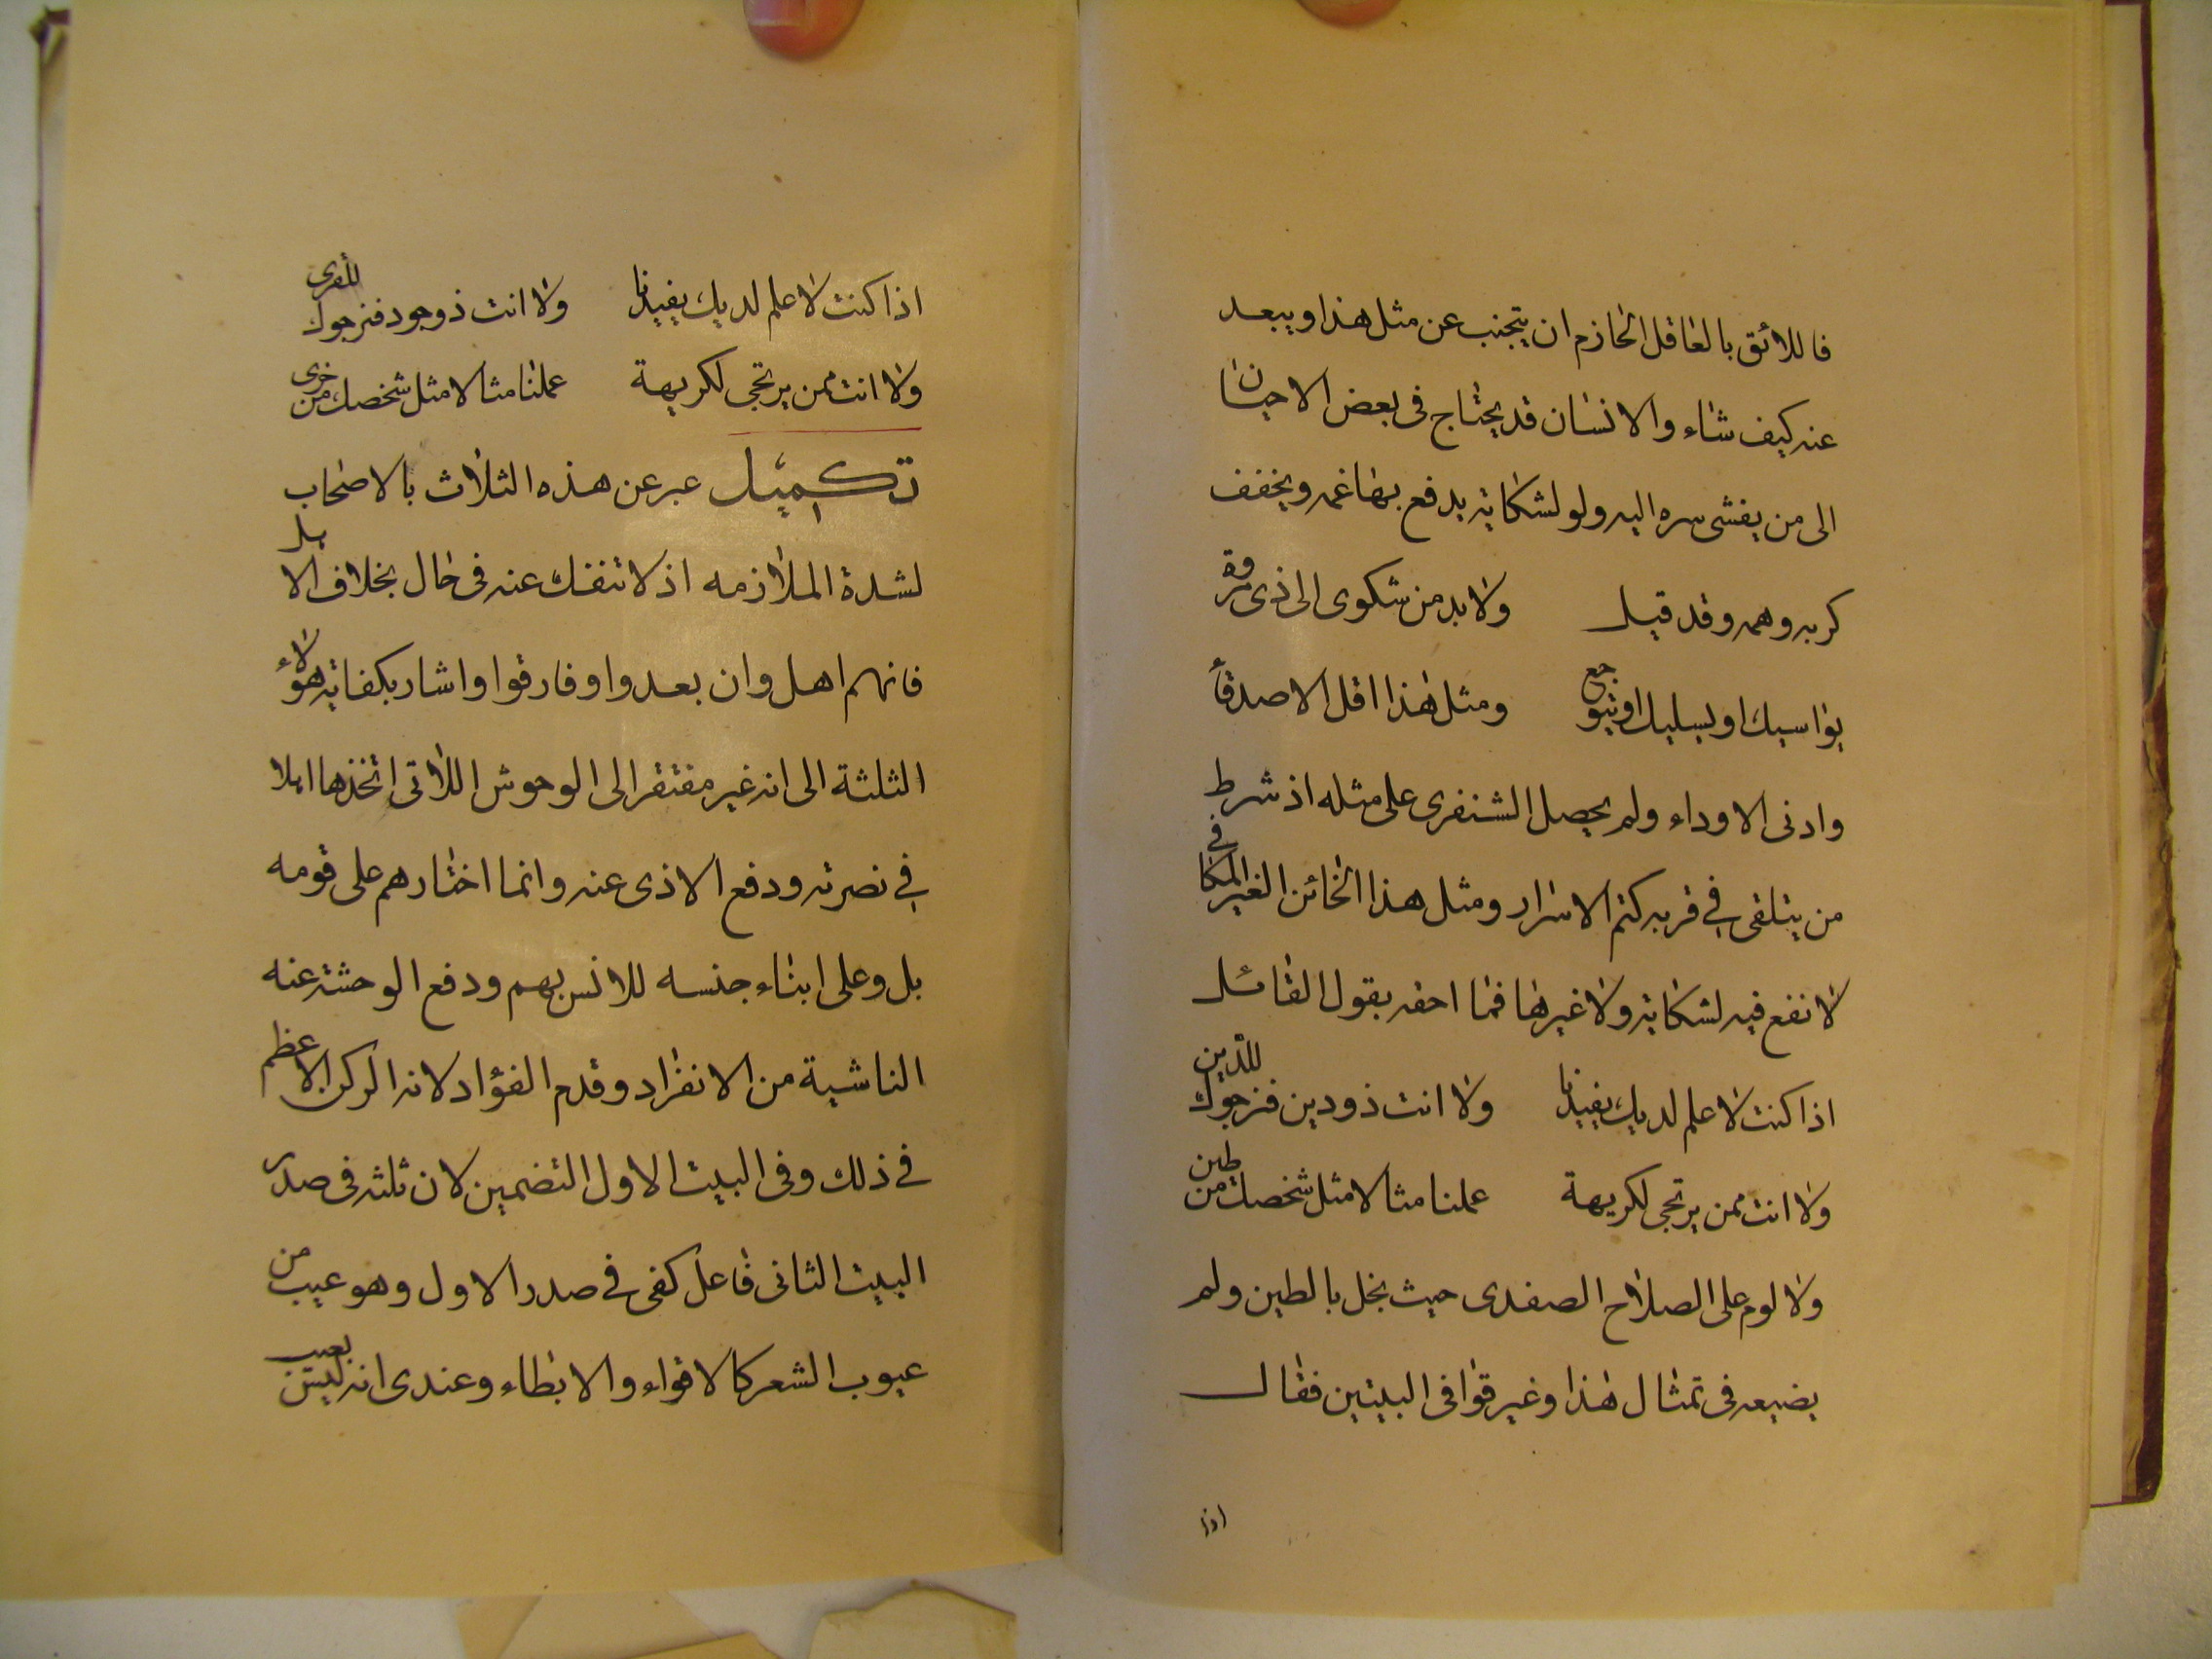 فاللائق بالعاقل الحازم ان يتجنب عن مثل هذا ويبعد
عنه كيف شاء والانسان قد يحتاج فى بعض الاحيان
الى من يفشى سره اليه ولو لشكاية يدفع بها غمه ويخفف
كربه وهمه وقد قيل ولا بد من شكوى الى ذى مروة
يواسيك او يسليك او يتوجع ومثل هذا اقل الاصدقاء
وادنى الاوداء ولم يحصل الشنفرى على مثله اذ شرط
من يتلقى فى قربه كتم الاسرار ومثل هذا الخائن الغير المكافى
لا نفع فيه لشكاية ولا غيرها فما احقه بقول القائل
اذا كنت لا علم لديك يفيدنا ولا انت ذو دين فنرجوك للدين
ولا انت ممن يرتجى لكريهة عملنا مثالا مثل شخصك من طين
ولا لوم على الصلاح الصفدى حيث بخل بالطين ولم
يضيعه فى تمثال هذا وغير قوافى البيتين فقال
اذا
اذا كنت لا علم لديك يفيدنا ولا انت ذو جود فنرجوك للقرى
ولا انت ممن يرتجى لكريهة عملنا مثالا مثل شخصك من خرى
تكميل عبر عن هذه الثلاث بالاصحاب
لشدة الملازمه اذ لا تنفك عنه فى حال بخلاف الابل
فانهم اهل وان بعدوا وفارقوا واشار بكفاية هؤلاء
الثلثة الى انه غير مفتقر الى الوحوش اللاتى اتخذها اهلا
فى نصرته ودفع الاذى عنه وانما اختارهم على قومه
بل وعلى ابناء جنسه للانس بهم ودفع الوحشة عنه
الناشية من الانفراد وقدم الفؤاد لانه الركن الاعظم
فى ذلك وفى البيت الاول التضمين لان ثلثه فى صدر
البيت الثانى فاعل كفى فى صدر الاول وهو عيب من
عيوب الشعر كالاقواء والايطاء وعندى انه ليس بعيب